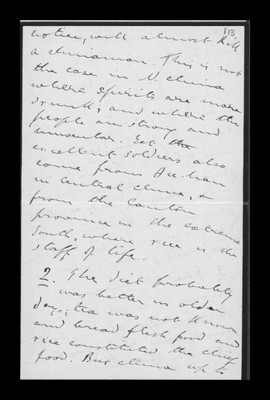 113
notice, will almost kill
a chinaman. This is not
the case in N. China
where spirits are more
drunk, and where the
people are strong and
muscular. Yet the
excellent soldiers also
come from Hu-nan
in Central China, &
from the Canton
province in the extreme
South, where rice is the
staff of life.
2. The diet probably
was better in older
days; tea was not known
and bread flesh food and
rice constituted the chief
food. But China up to